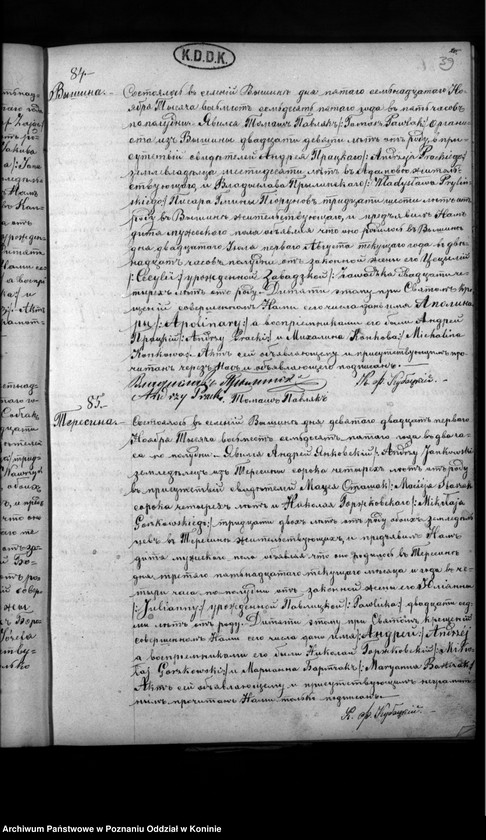 K.D.D.K.
39
84
Вышина.
Состоялось в селении Вышине дня пятаго семнадцатаго Но-
ября Тысяча восемсот семьдесят пятаго года в пять часов
по полудни. Явился Томаш Павляк /: Tomasz Pawlak :/ Органи-
ста из Вышины двадцати девяти лет от роду, в при-
сутствии свидетелей Андрея Працкаго /: Andrzeja Prackiego :/
земледельца шестидесяти лет в жительст-
ствующаго и Владислава /: Władysława
Писаря Гмины Піорунов тридцати шести лет от
роду в Вышине жительствующаго, и предъявил Нам
дитя мужескаго пола объявляя что оно родилось в Вышине
дня двадцатаго Іюля перваго Августа текущаго года в две-
надцать часов полудни от законной жены его Цецилии
/: Cecylii :/ урожденной Завадзкой /: Zawadzka двадцати че-
тырех лет от роду. Дитяти этому при Святом Кре-
щении совершенном Нами сего числа дано имя Аполина-
ры /: Apolinary :/ а восприемниками его были Андрей
Працкий /: Andrzej Pracki :/ и Михалина Конкова /: Michalina
Konkowa. Акт сей объявляющему и присутствующим про-
читан через Нас и объявляющего подписан.
Andrzej Pracki Томаш Павляк
85.
Тересина.
Состоялось в селении Вышине дня девятаго двадцать перваго
Ноября Тысяча восемсот семьдесят пятаго года в два ча-
са по полудни. Явился Андрей Янковский /: Andrzej Jankowski
земледелец из Тересины сорока четырех лет от роду
в присутствии свидетелей Мацея /: Macieja
сорока четырех лет и Николая Горжковскаго /: Mikołaja
Gorzkowskiego :/ тридцати двух лет от роду обоих земледель-
цев в Тересине жительствующих, и предъявил Нам
дитя мужескаго пола объявляя что оно родилось в Тересине
дня третяго пятнадцатаго текущаго месяца и года в че-
тыри часа по полудни от законной жены его Юлианны
/: Julianny :/ урожденной Павлицкой /: Pawlicka :/ двадцати сед-
ми лет от роду. Дитяти этому при Святом Крещении
совершенном Нами сего числа дано имя: Андрей /: Andrzej
а восприемниками его были Николай Горжковский /: Miko-
łaj Gorzkowski :/ и Марианна Бартчак /: Maryanna
Акт сей объявляющему и присутствующим неграмот-
ным прочитан Нами только подписан.
Archiwum Państwowe w Poznaniu Oddział w Koninie